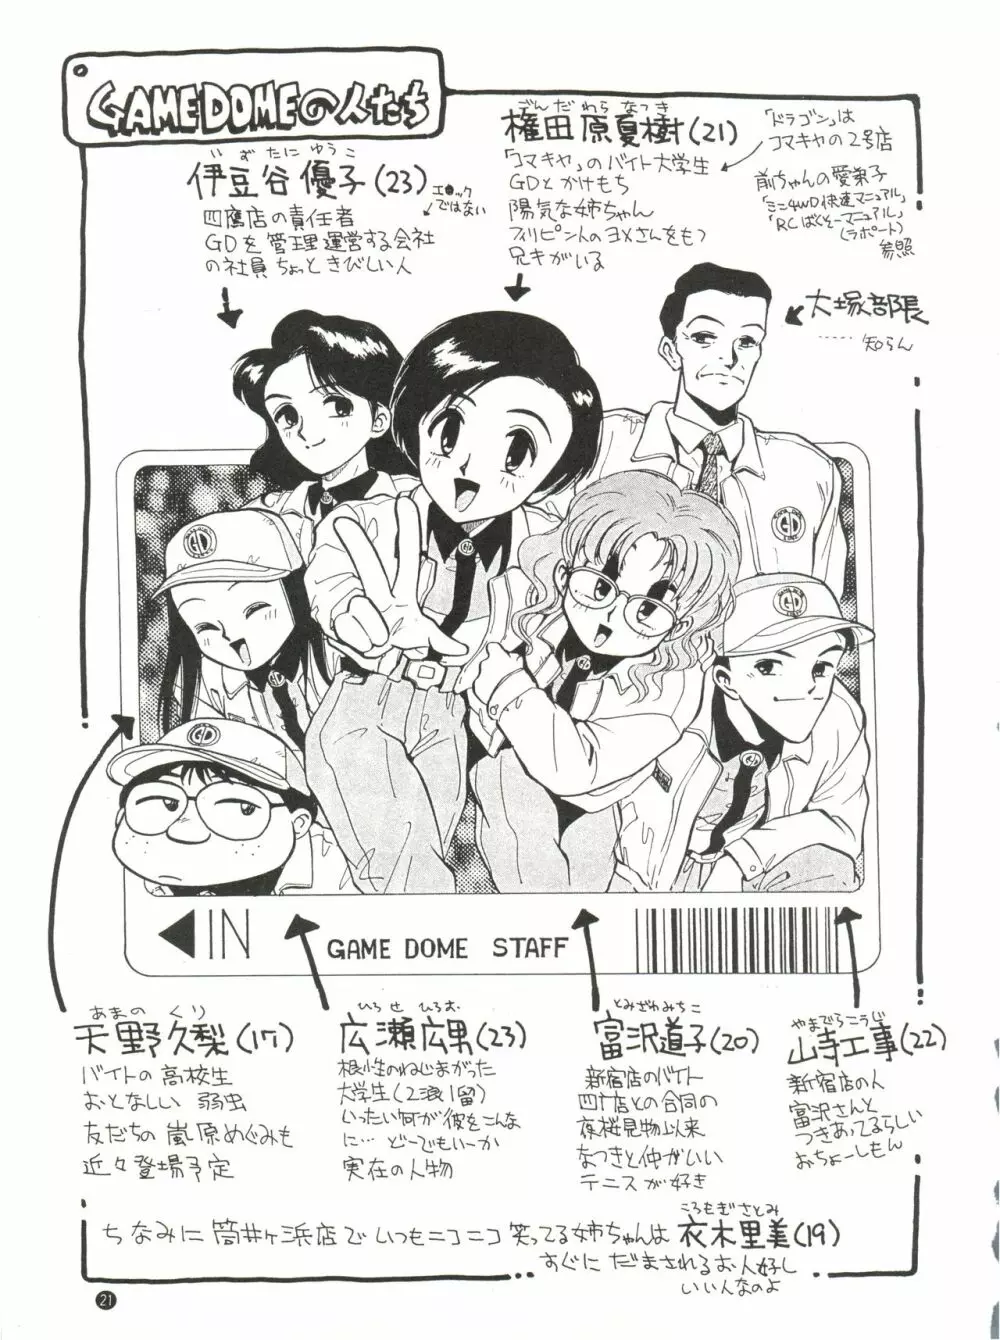 GAME DOMEの人たち
ごんだわらなつき
権田原夏樹(21)
「コマキヤ」のバイト大学生
GDとかけもち
陽気な姉ちゃん
フィリピン人のヨメさんをもつ
兄キがいる
「ドラゴン」は
コマキヤの2号店
前ちゃんの愛弟子
「ミニ4WD快速マニュアル」
「RCばくそーマニュアル」
(ラポート)
参照
いずたにゆうこ
伊豆谷優子(23)
エ●ック
ではない
四鷹店の責任者
GDを管理運営する会社
の社員 ちょっときびしい人
大塚部長
……知らん
GD
GD
GD
GD
IN
GAME DOME STAFF
あまの くり
天野久梨(17)
バイトの高校生
おとなしい 弱虫
友だちの嵐原めぐみも
近々登場予定
ひろせ ひろお
広瀬広男(23)
根性のねじまがった
大学生(2浪1留)
いったい何が彼をこんな
に…どーでもいーか
実在の人物
とみざわみちこ
富沢道子(20)
新宿店のバイト
四鷹店との合同の
夜桜見物以来
なつきと仲がいい
テニスが好き
やまでらこうじ
山寺工事(22)
新宿店の人
富沢さんと
つきあってるらしい
おちょーしもん
ちなみに筒井ヶ浜店でいつもニコニコ笑ってる姉ちゃんは
ころもぎさとみ
衣木里美(19)
すぐにだまされるお人好し
いい人なのよ
21